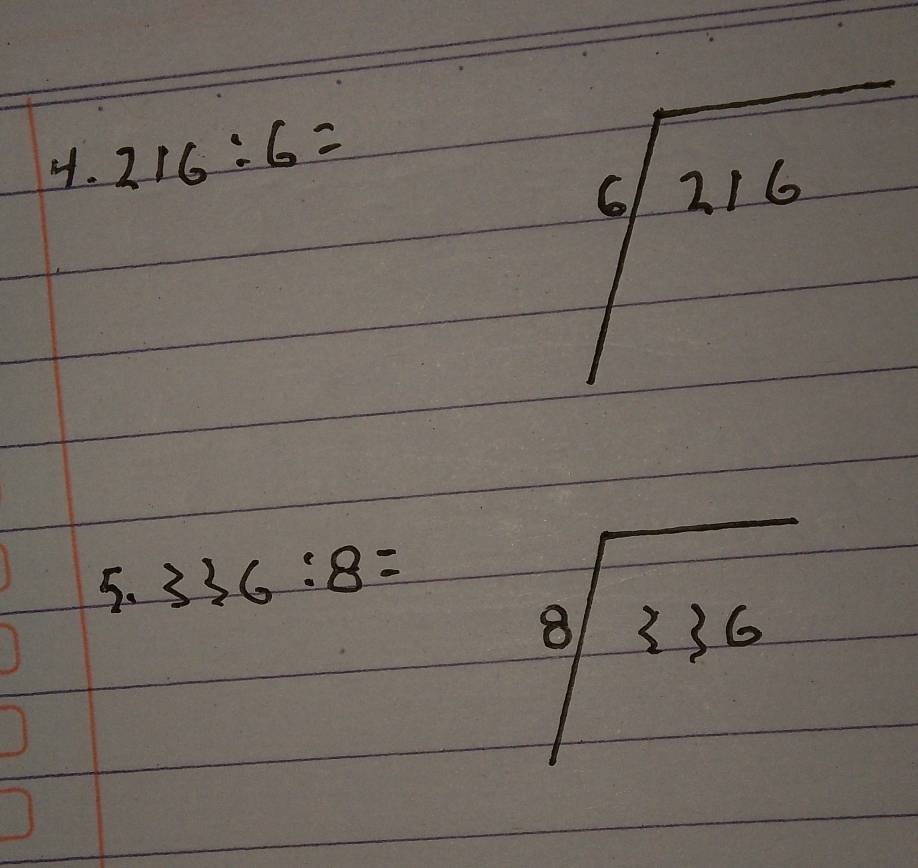 4. 216 : 6 =
6 216
5. 336 : 8 =
8 336